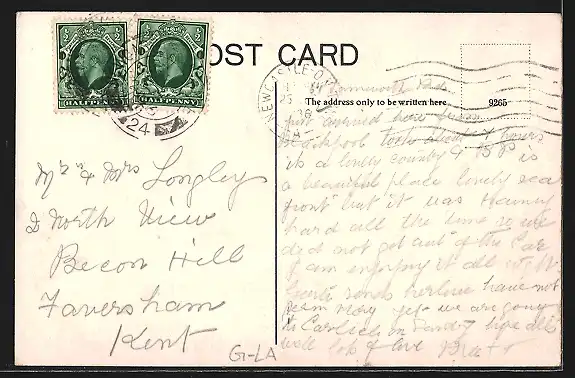 POST CARD
HALFPENNY
HALFPENNY
24
NEWCASTLE
The address only to be written here
9265
Mr & Mrs Longley
2 North View
Becon Hill
Faversham
Kent
G-LA
just arrived here from
Blackpool took about 7 hours
its a lovely country & is
a beautiful place lovely sea
front but it was
hard all the time so we
did not get out of the Car
I am enjoying it all right
have not
seen very yet we are going
to Carlisle on Sunday hope all
well lots of love